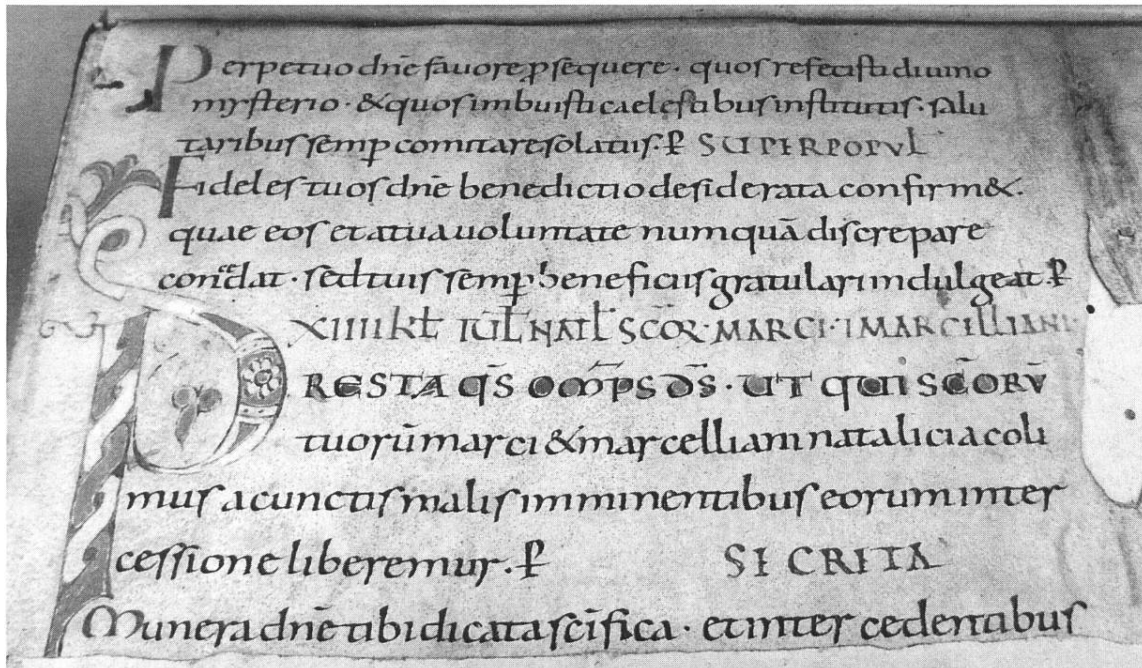 Perpetuo dn̄e favore ꝓsequere · quos refecisti diuino
mysterio · & quos imbuisti caelestibus institutis · salu
taribus semꝑ comitare solatiis · ꝑ SUPER POPUL̄
Fideles tuos dn̄e benedictio desiderata confirm& ·
quae eos et a tua uoluntate numquā discrepare
concedat · sed tuis semꝑ beneficiis gratulari indulgeat · ꝑ
XIIII KL̄ IUL̄ NAT̄L SCŌꝜ · MARCI · & MARCELLIANI ·
PRESTA QS̄ OMP̄S DS̄ · UT QUI SCŌRŪ
tuorū marci & marcelliani natalicia coli
mus a cunctis malis imminentibus eorum inter
cessione liberemur · ꝑ SECRETA
Munera dn̄e tibi dicata sc̄ifica · et intercedentibus